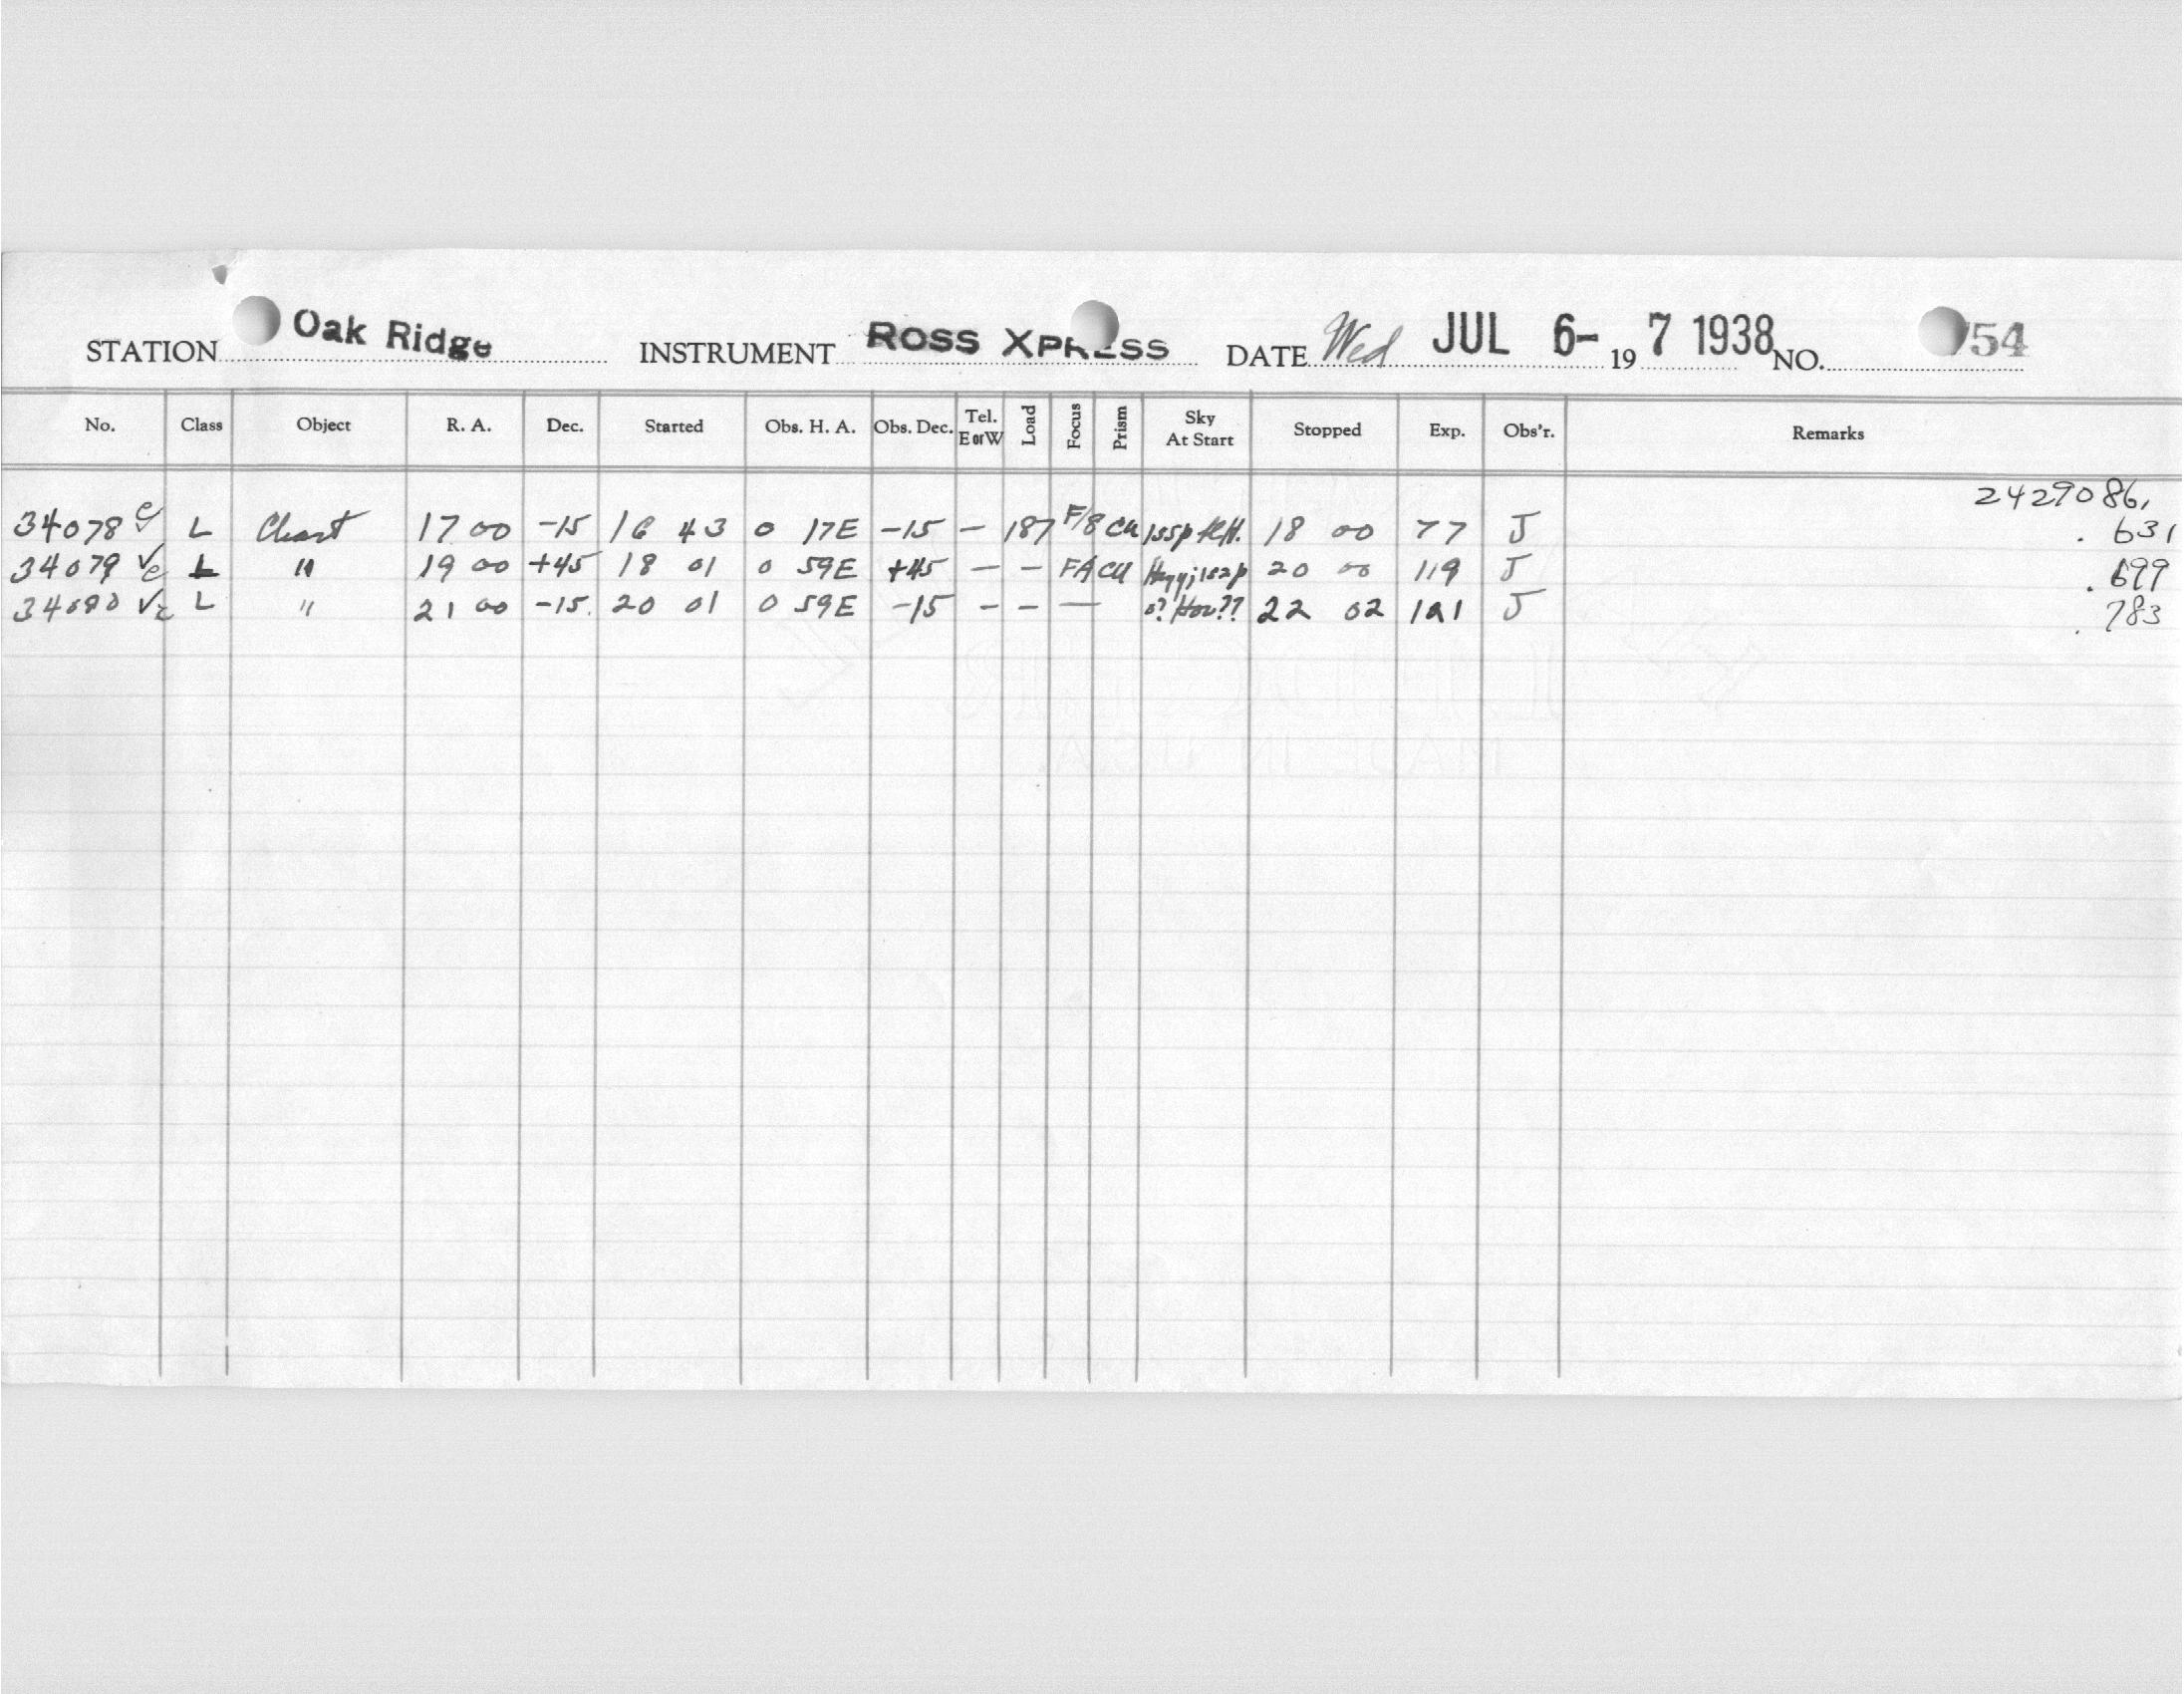 STATION Oak Ridge INSTRUMENT ROSS XPRESS DATE Wed JUL 6- 19 7 1938 NO. 754
No. Class Object R. A. Dec. Started Obs. H. A. Obs. Dec. Tel. E or W Load Focus Prism Sky At Start Stopped Exp. Obs'r. Remarks
2429086.
34078 L Chart 17 00 -15 16 43 0 17E -15 - 187 F/8 18 00 77 J .631
34079 L " 19 00 +45 18 01 0 59E +45 - - 20 00 119 J .699
34080 L " 21 00 -15. 20 01 0 59E -15 - - — 22 02 121 J .783
MADE IN U.S.A.